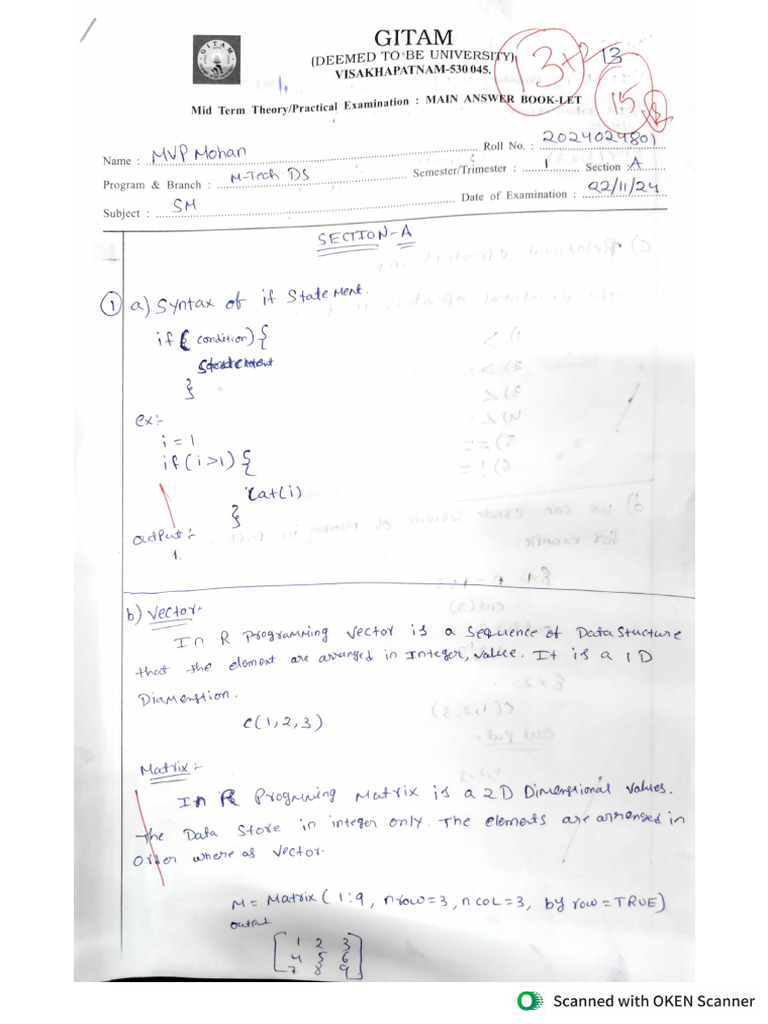 GITAM
(DEEMED TO BE UNIVERSITY)
VISAKHAPATNAM-530 045.
13+2
13
15
Mid Term Theory/Practical Examination : MAIN ANSWER BOOK-LET
Name : MVP Mohan Roll No. : 2024024801
Program & Branch : M-Tech DS Semester/Trimester : 1 Section : A
Subject : SM Date of Examination : 22/11/24
SECTION-A
① a) Syntax of if Statement.
if ( condition) {
Statement
}
ex:-
i = 1
if (i>1) {
Cat(i)
}
output:-
1.
b) Vector:-
In R Programming Vector is a Sequence of Data Structure
that the element are arranged in Integer, value. It is a 1D
Diamenstion.
C(1,2,3)
Matrix:-
In R Programing Matrix is a 2D Dimenstional values.
The Data Store in integer only. The elements are arrensed in
Order where as Vector.
M = Matrix( 1:9, nrow=3, ncol=3, by row=TRUE)
output
1 2 3
4 5 6
7 8 9
Scanned with OKEN Scanner